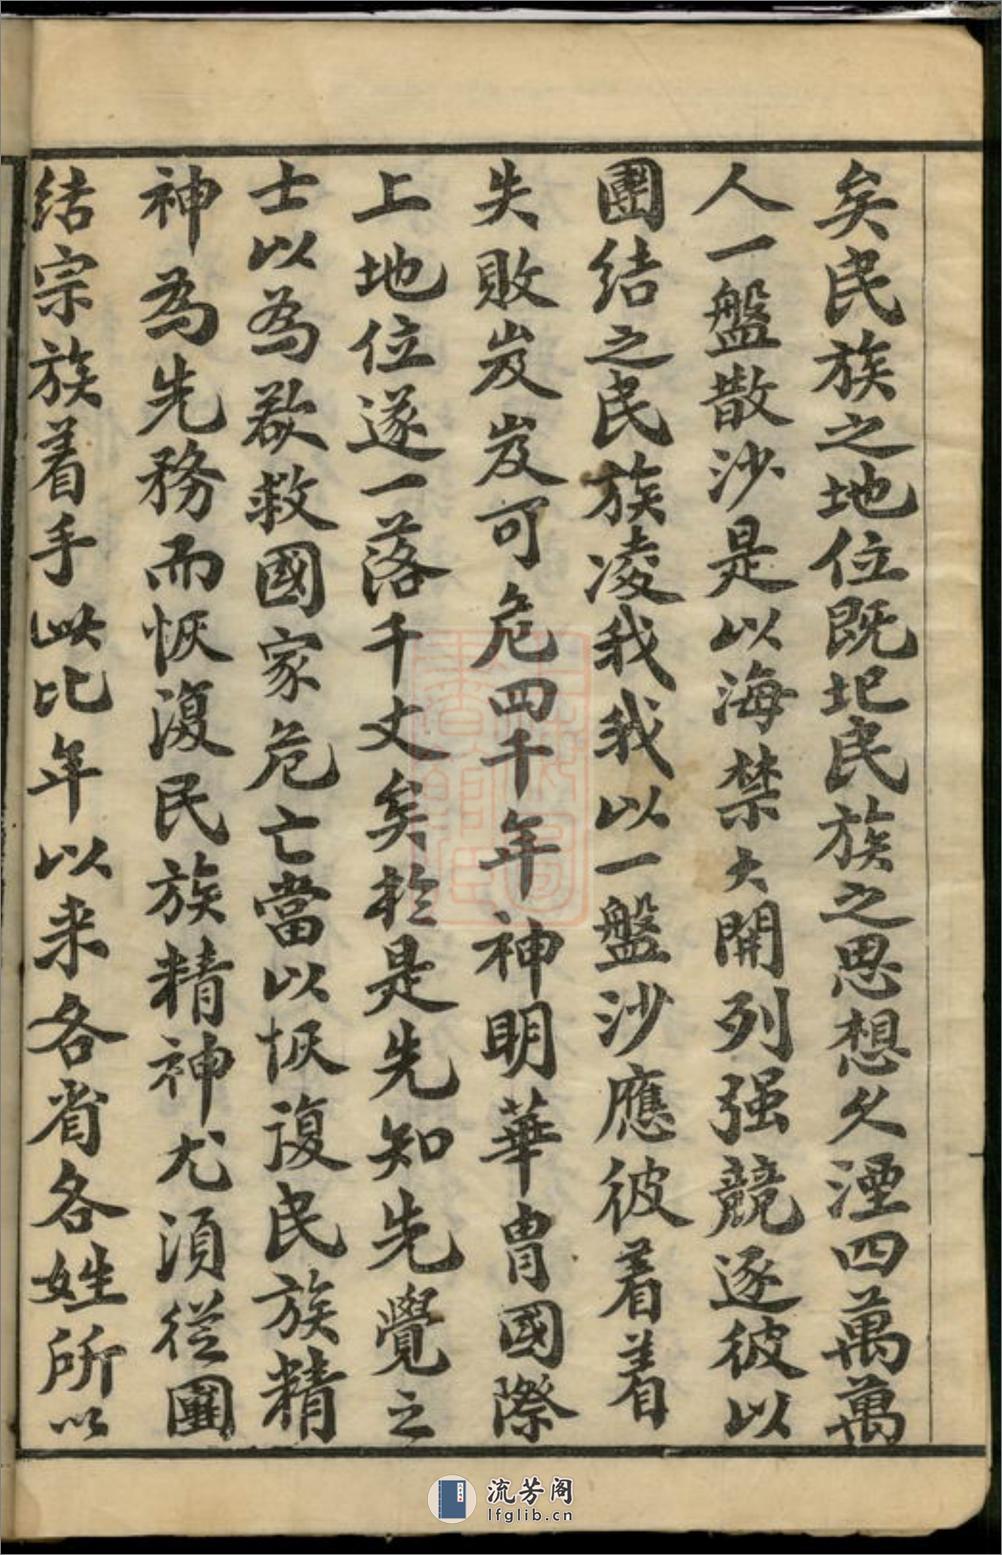 矣民族之地位既圯民族之思想久湮四萬萬
人一盤散沙是以海禁大開列强競逐彼以
團结之民族凌我我以一盤沙應彼着着
失敗岌岌可危四千年神明華胄國際
上地位遂一落千丈矣於是先知先覺之
士以為欲救國家危亡當以恢復民族精
神為先務而恢復民族精神尤須從團
结宗族着手此比年以来各省各姓所以
流芳阁
lfglib.cn